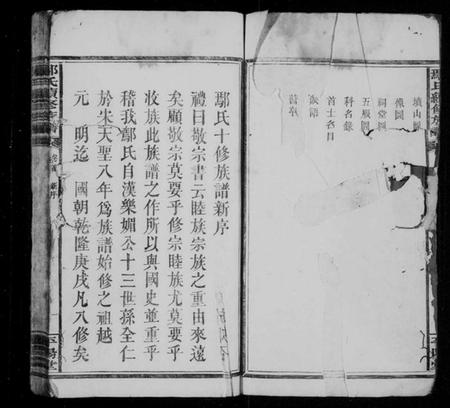 墳山圖
像圖
祠堂圖
五服圖
科名錄
首士名目
族語
鄢氏十修族譜新序
禮曰敬宗書云睦族宗族之重由來遠
矣顧敬宗莫要乎修宗睦族尤莫要乎
收族此族譜之作所以與國史並重乎
稽我鄢氏自漢樂媚公十三世孫全仁
於宋天聖八年爲族譜始修之祖越
元 明迄 國朝乾隆庚戌凡八修矣